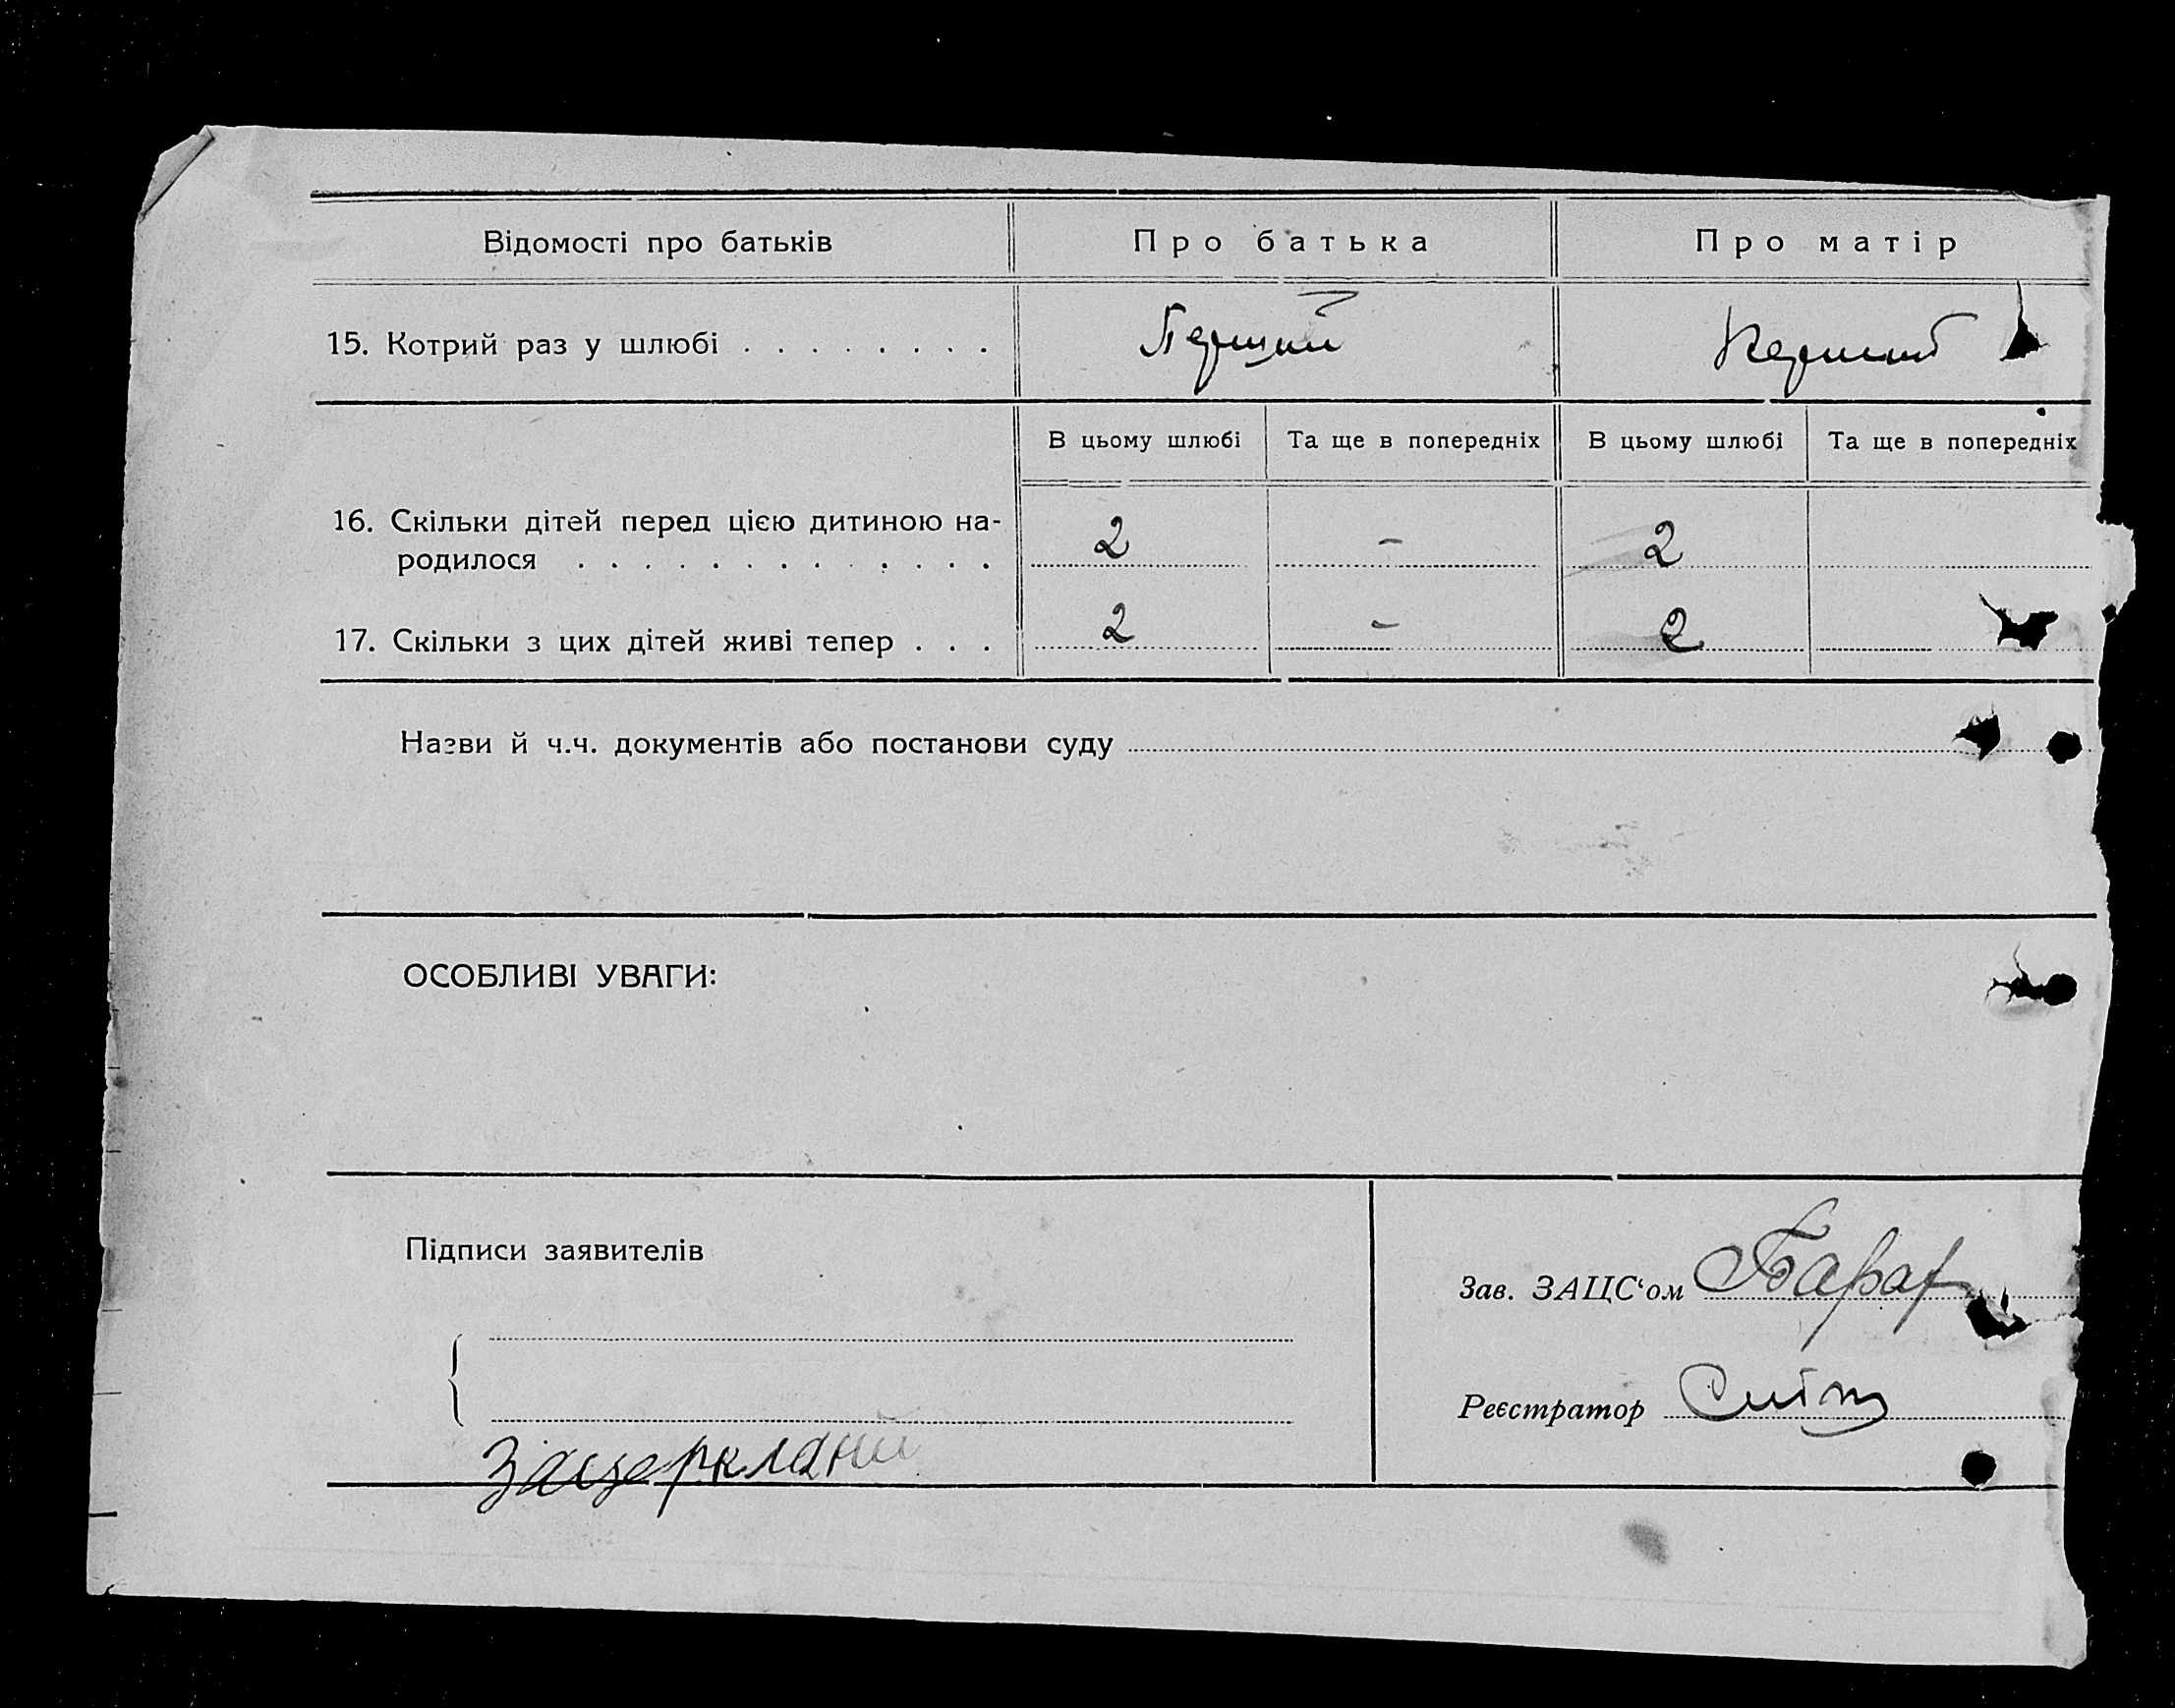 Відомості про батьків Про батька Про матір
15. Котрий раз у шлюбі . . . . . . . . Перший Перший
В цьому шлюбі Та ще в попередніх В цьому шлюбі Та ще в попередніх
16. Скільки дітей перед цією дитиною на-
родилося . . . . . . . . . . . . . 2 - 2
17. Скільки з цих дітей живі тепер . . . 2 - 2
Назви й ч.ч. документів або постанови суду
ОСОБЛИВІ УВАГИ:
Підписи заявителів
Зав. ЗАЦС‘ом
Реєстратор